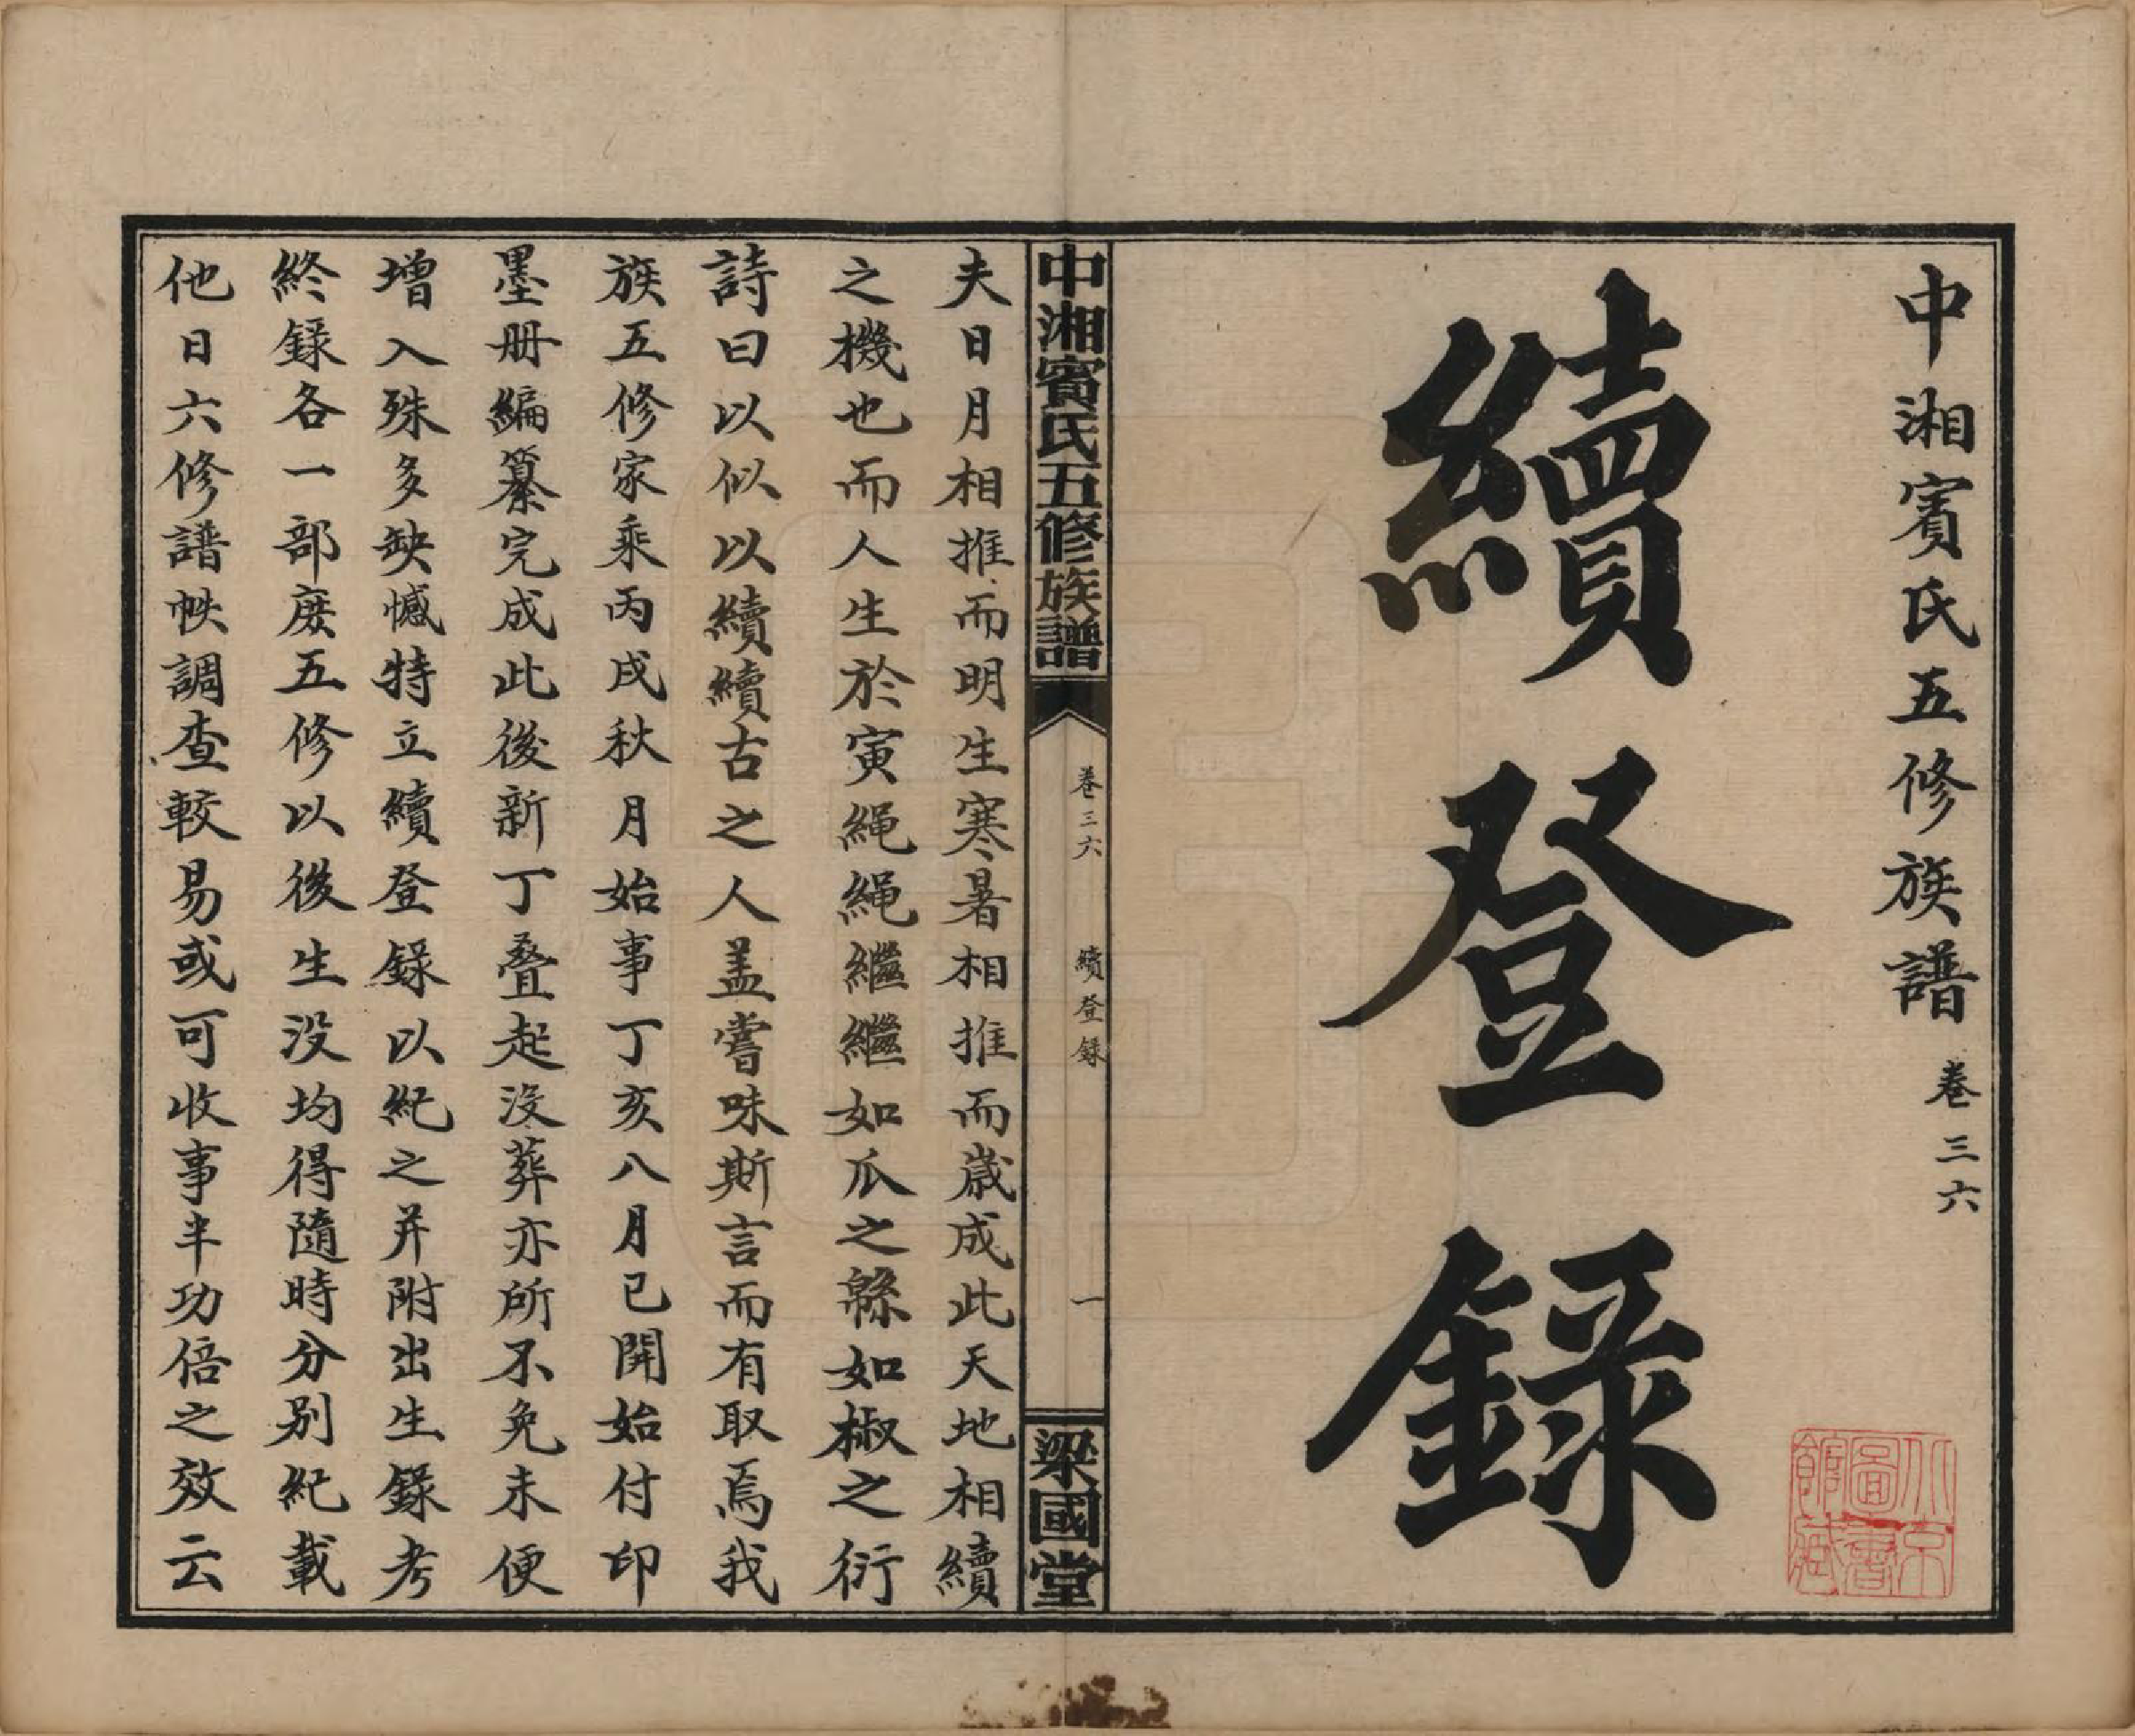 中湘賓氏五修族譜 卷三六
續登錄
北京圖書館藏
中湘賓氏五修族譜 卷三六 續登錄 一 梁國堂
夫日月相推而明生寒暑相推而歲成此天地相續
之機也而人生於寅繩繩繼繼如瓜之緜如椒之衍
詩曰以似以續續古之人盖嘗味斯言而有取焉我
族五修家乘丙戌秋月始事丁亥八月已開始付印
墨册編纂完成此後新丁叠起沒葬亦所不免未便
增入殊多缺憾特立續登錄以紀之并附出生錄考
終錄各一部庶五修以後生没均得隨時分別紀載
他日六修譜帙調查較易或可收事半功倍之效云